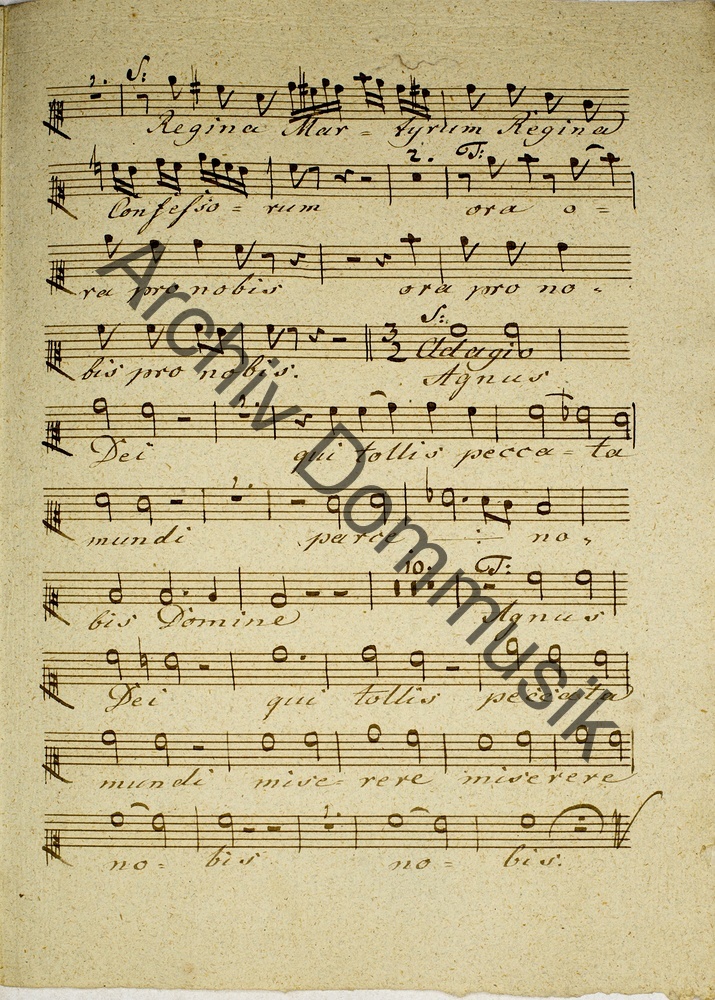 2. S:
Regina Mar = tyrum Regina
2. T:
Confesso = rum ora o =
ra pro nobis ora pro no =
S:
3 2 Adagio
bis pro nobis. Agnus
2.
Dei qui tollis pecca = ta
2.
mundi parce no =
10. T:
bis Domine Agnus
Dei qui tollis peccata
mundi mise = rere miserere
2.
no = bis no = bis.
Archiv Dommusik